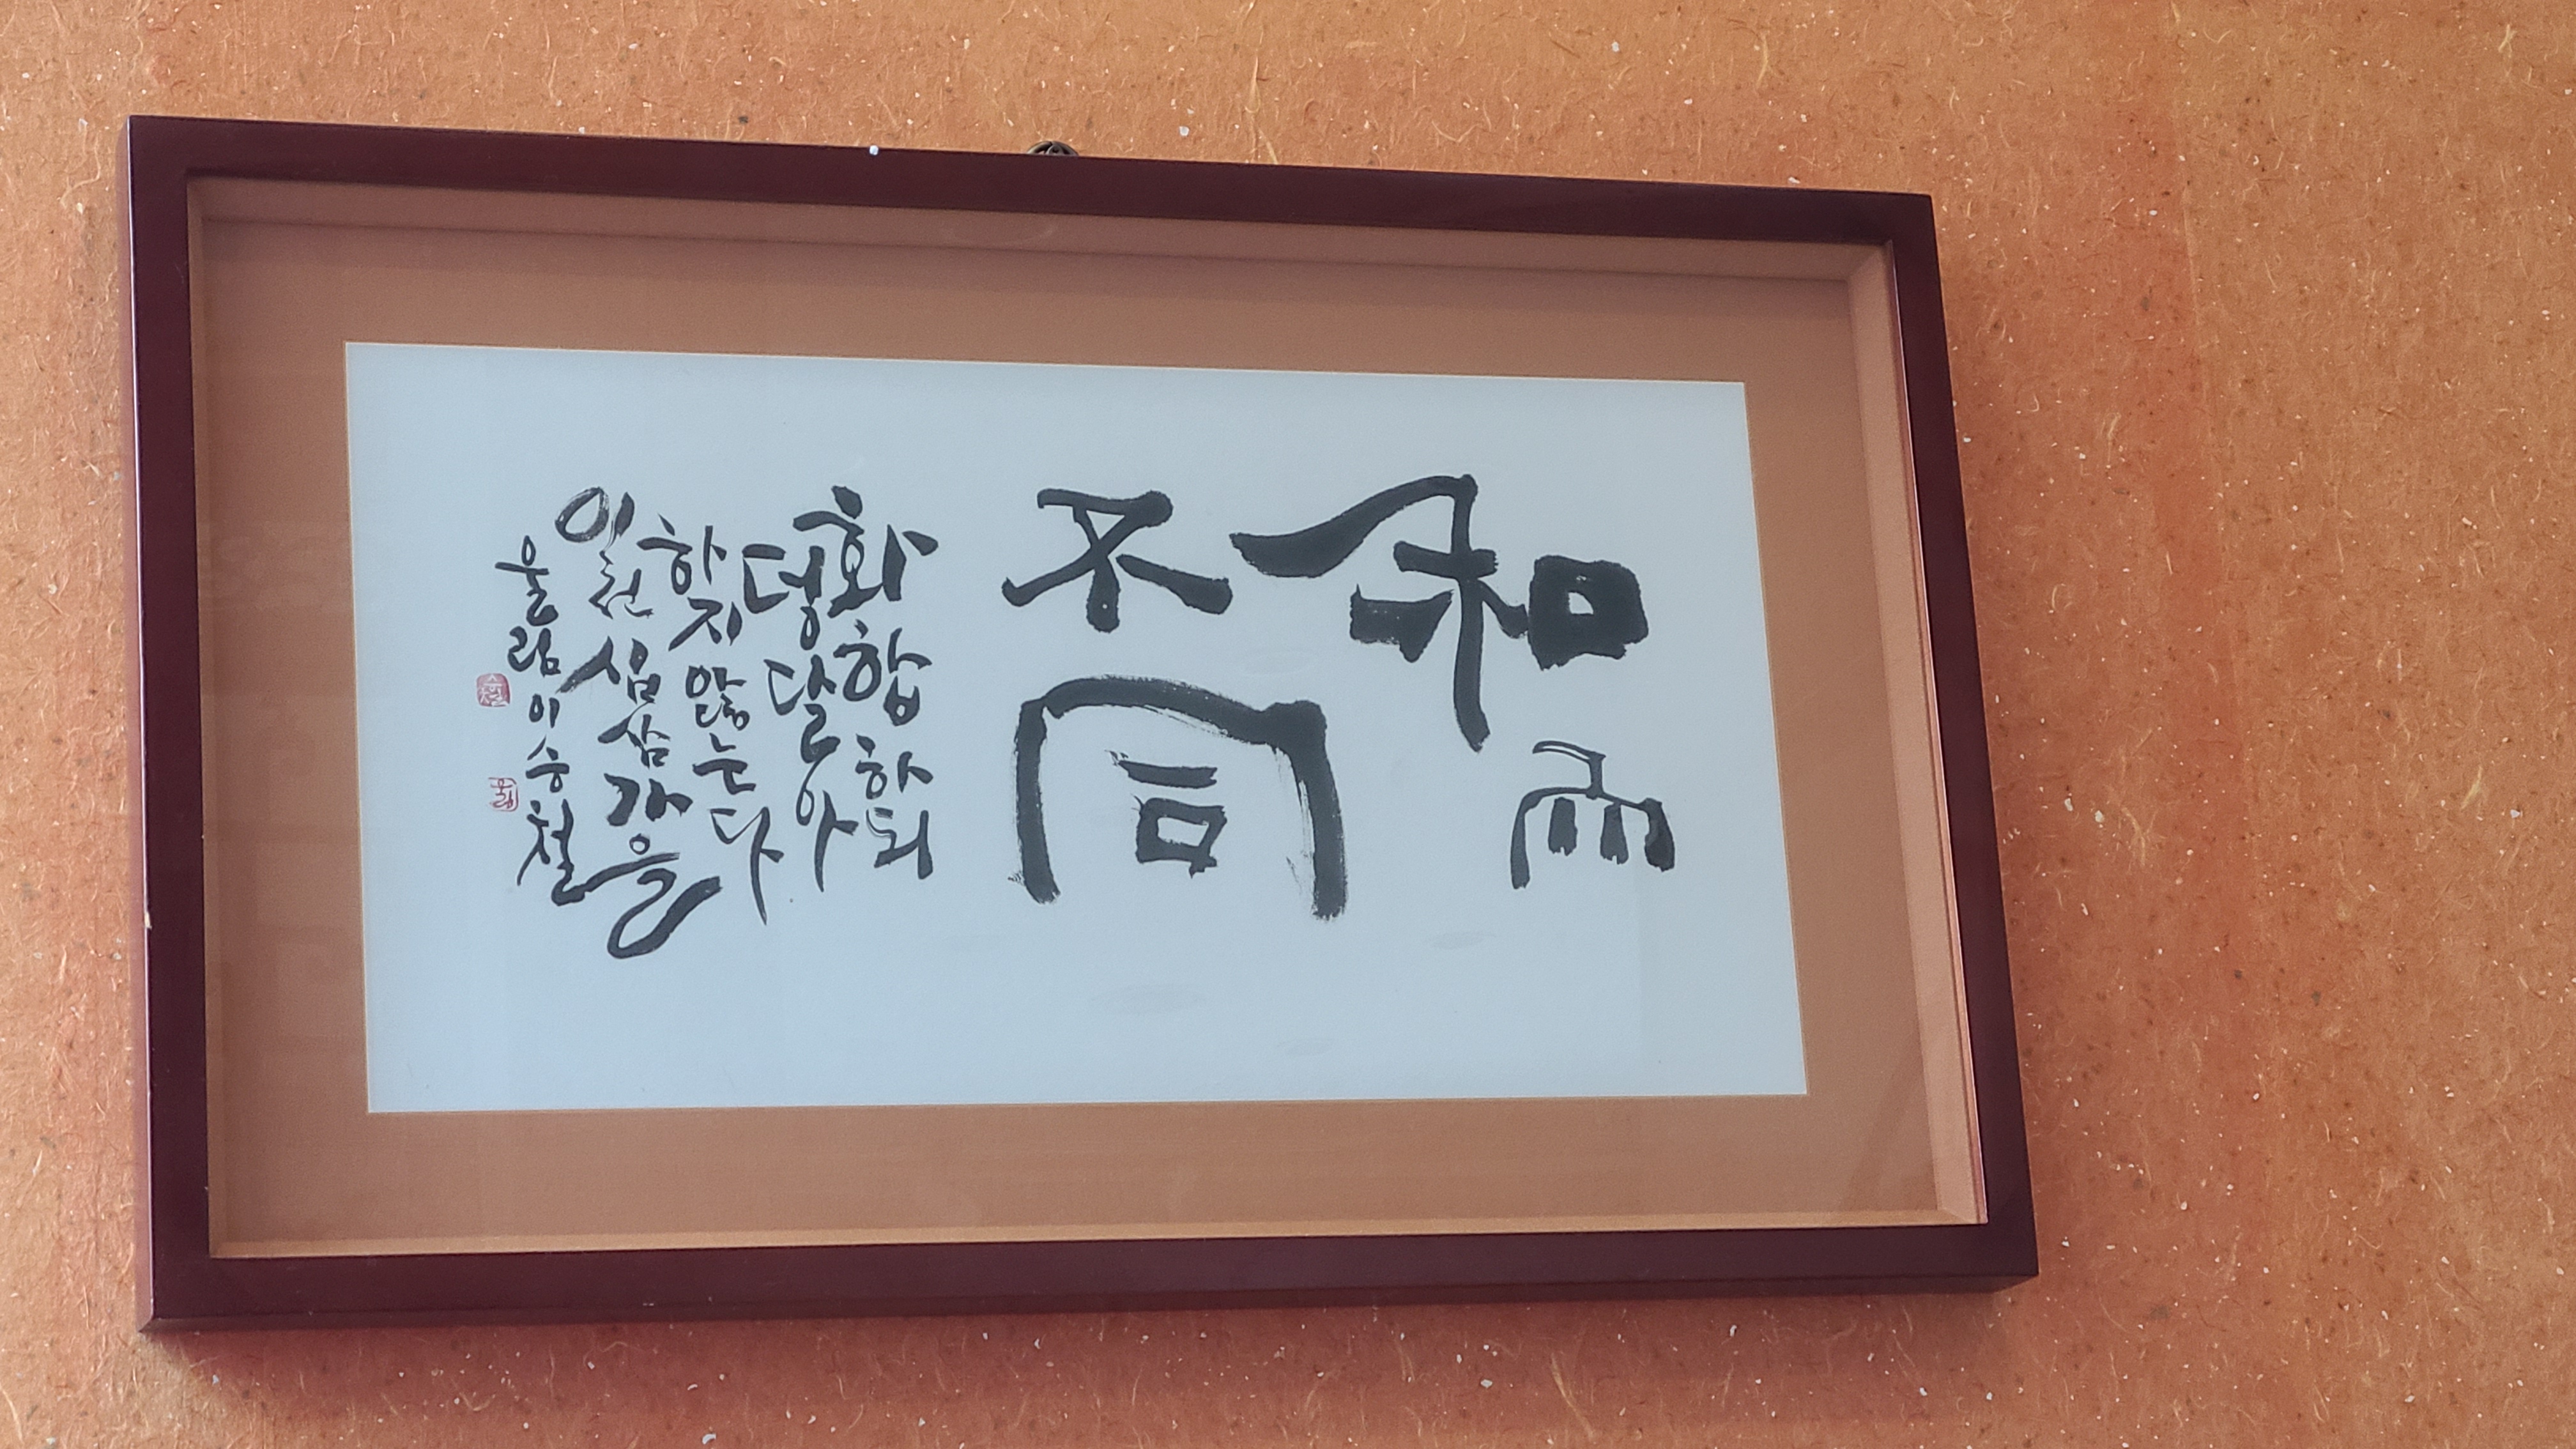 和而
不同
화합하되
덩달아
하지 않는다
이천십삼 가을
울림 이승철